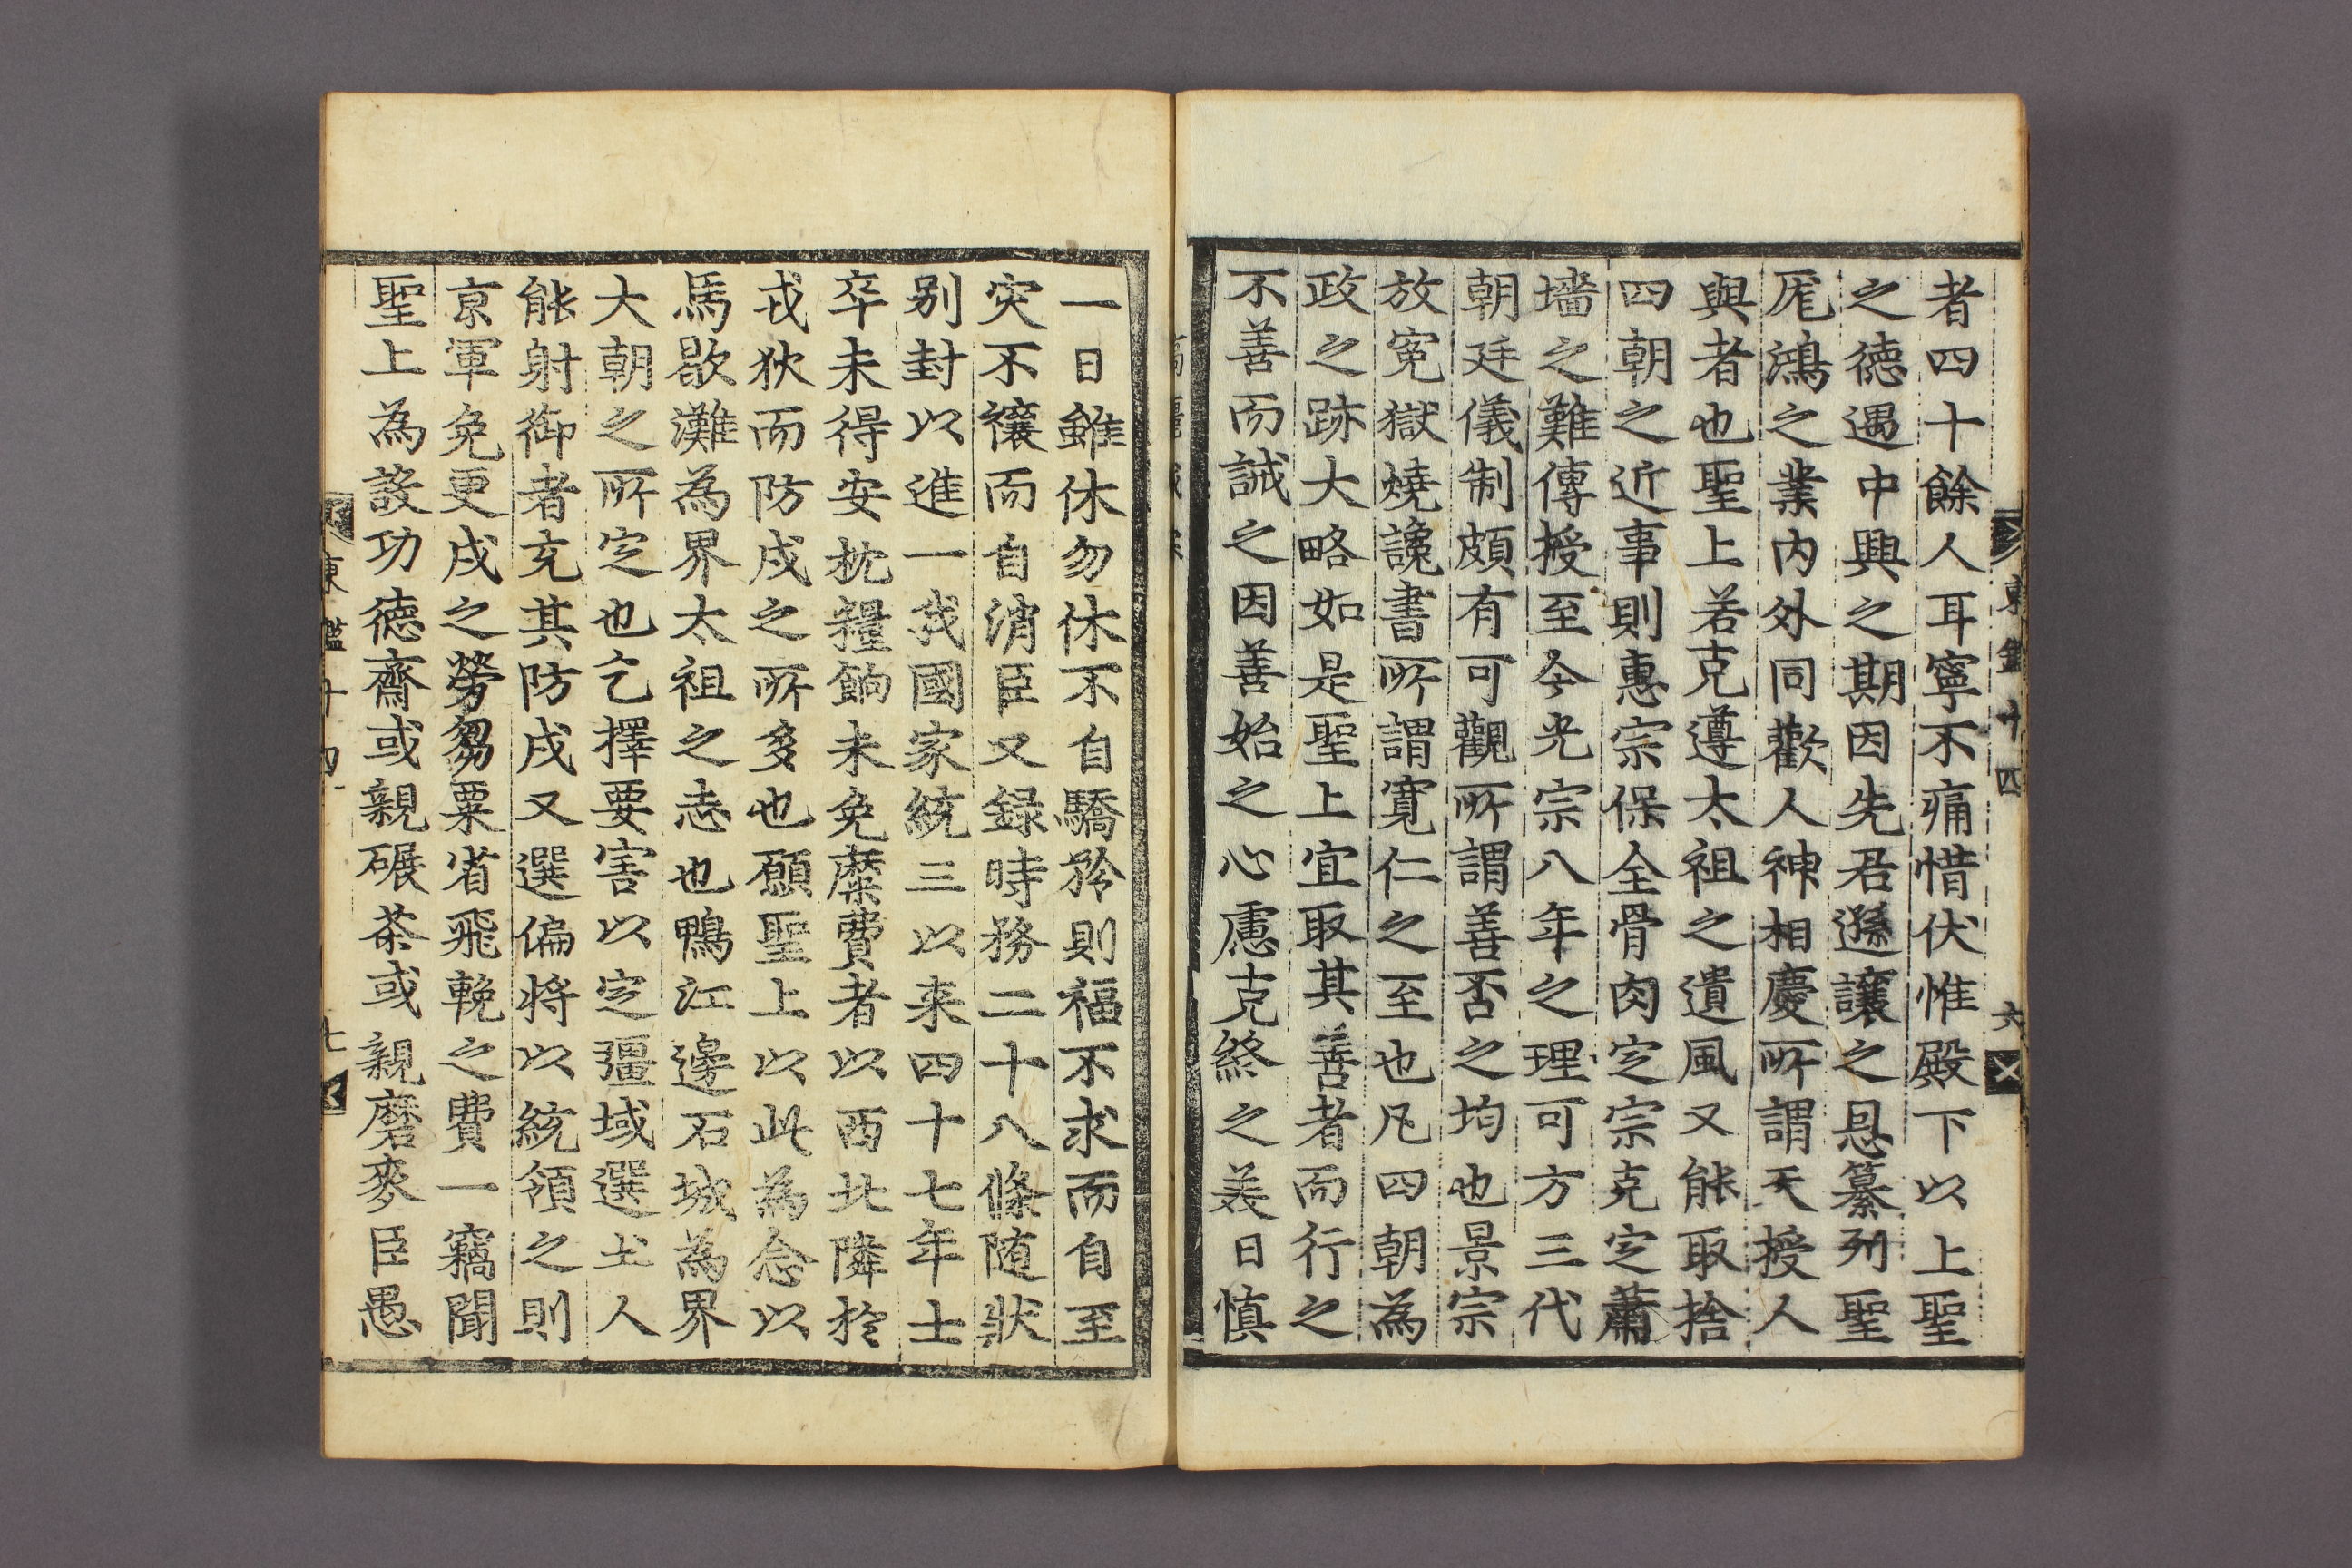 東鑑十四 六
者四十餘人耳寧不痛惜伏惟殿下以上聖
之德遇中興之期因先君遜讓之恩纂列聖
厖鴻之業内外同歡人神相慶所謂天授人
與者也聖上若克遵太祖之遺風又能取捨
四朝之近事則惠宗保全骨肉定宗克定蕭
墻之難傳授至今光宗八年之理可方三代
朝廷儀制頗有可觀所謂善否之均也景宗
放寃獄燒讒書所謂寬仁之至也凡四朝為
政之跡大略如是聖上宜取其善者而行之
不善而誡之因善始之心慮克終之美日慎
一日雖休勿休不自驕矜則福不求而自至
灾不禳而自消臣又録時務二十八條随狀
别封以進一我國家統三以来四十七年士
卒未得安枕糧餉未免糜費者以西北隣於
戎狄而防戍之所多也願聖上以此為念以
馬歇灘為界太祖之志也鴨江邊石城為界
大朝之所定也乞擇要害以定疆域選土人
能射御者充其防戍又選偏將以統領之則
京軍免更戍之勞芻粟省飛輓之費一竊聞
聖上為設功德齋或親碾茶或親磨麥臣愚
東鑑十四 七